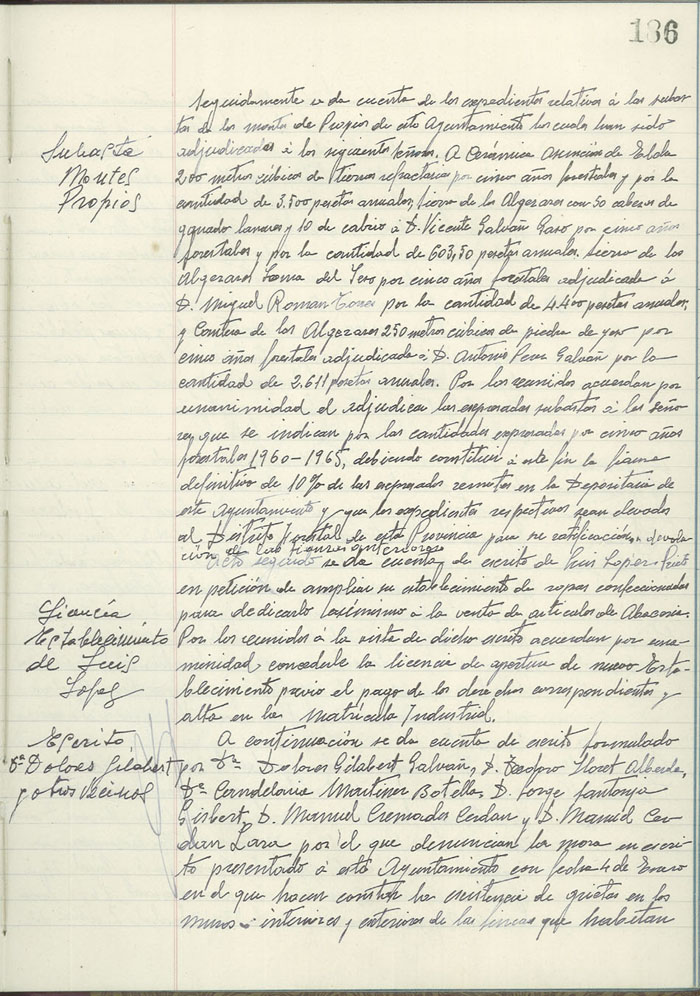 186
Subasta
Montes
Propios
Seguidamente se da cuenta de los expedientes relativos á las subas-
tas de los montes de Propios de este Ayuntamiento los cuales han sido
adjudicadas á los siguientes señores. A Cerámica Asunción de Elda
200 metros cúbicos de tierras refractarias por cinco años forestales y por la
cantidad de 3.500 pesetas anuales, sierra de los Algezares con 50 cabezas de
ganado lanares y 10 de cabrio á D. Vicente Galvañ Gaso por cinco años
forestales y por la cantidad de 603,50 pesetas anuales, sierra de los
Algezares Loma del Yeso por cinco años forestales adjudicada á
D. Miguel Roman por la cantidad de 4.400 pesetas anuales,
y Cantera de los Algezares 250 metros cúbicos de piedra de yeso por
cinco años forestales adjudicada á D. Antonio Perez Galvañ por la
cantidad de 2.611 pesetas anuales. Por los reunidos acuerdan por
unanimidad el adjudicar las expresadas subastas á los seño-
res que se indican por las cantidades expresadas y por cinco años
forestales 1960-1965, debiendo constituir á este fin la fianza
definitiva de 10% de las expresadas remates en la Depositaria de
este Ayuntamiento y que los expedientes respectivos sean elevados
al Distrito Forestal de esta Provincia para su ratificación y devolu-
ción de las fianzas anteriores
Licencia
Establecimiento
de Luis
Lopez
Acto seguido se da cuenta de escrito de Luis Lopez Prieto
en petición de ampliar su establecimiento de ropas confeccionadas
para dedicarlo asimismo á la venta de artículos de Abacería.
Por los reunidos á la vista de dicho escrito acuerdan por una-
nimidad concederle la licencia de apertura de nuevo Esta-
blecimiento previo el pago de los derechos correspondientes y
alta en la Matrícula Industrial.
Escrito
Dª Dolores Gilabert
y otros vecinos
A continuación se da cuenta de escrito formulado
por Dª Dolores Gilabert Galvañ, D. Teodoro Lloret Alberola,
Dª Candelaria Martinez Botella, D. Jorge Santonja
Gisbert, D. Manuel Cremades Cerdan y D. Manuel Cer-
dan Lara por el que denuncian la mora en escri-
to presentado á este Ayuntamiento con fecha 4 de Enero
en el que hacen constar la existencia de grietas en los
muros interiores y exteriores de las fincas que habitan